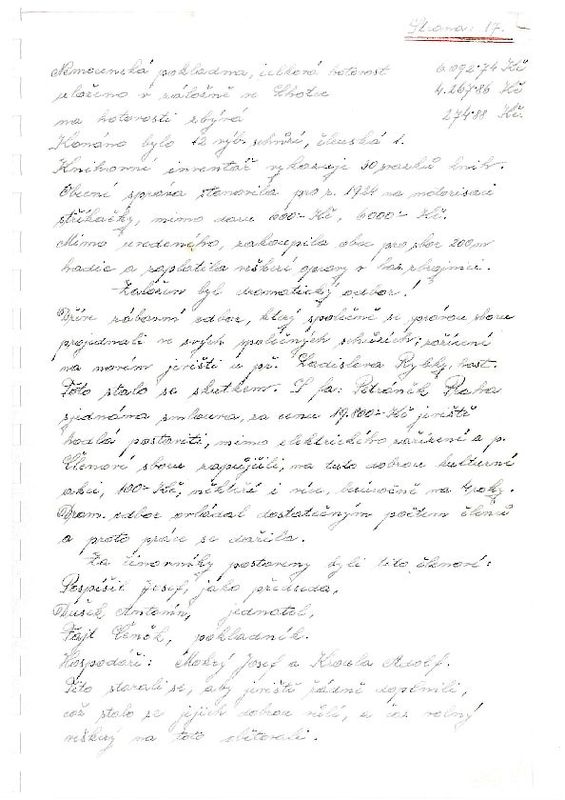 Strana: 17.
Nemocenská pokladna, celková hotovost 6.092·74 Kč
uloženo v záložně ve Lhotce 4.267·86 Kč
na hotovosti zbývá 274·88 Kč.
Konáno bylo 12 výb. schůzí, členská 1.
Knihovní inventář vykazuje 90 svazků knih.
Obecní správa stanovila pro r. 1924 na motorisaci
stříkačky, mimo daru 1000·- Kč, 6000·- Kč.
Mimo uvedeného, zakoupila obec pro sbor 200 m
hadic a zaplatila veškeré opravy v has. zbrojnici.
- Založen byl dramatický odbor!
Dříve zábavní odbor, který společně se správou sboru
projednali ve svých společných schůzích: zařízení
na novém jevišti u př. Ladislava Rybky, host.
Toto stalo se skutkem. S fa: Petráněk Praha
sjednána smlouva, za cenu 19.800·- Kč jeviště
hodlá postaviti, mimo elektrického zařízení a p.
Členové sboru zapůjčili, na tuto dobrou kulturní
akci, 100·- Kč, někteří i více, bezúročně na 4 roky.
Dram. odbor ovládal dostatečným počtem členů
a proto práce se dařila.
Za činovníky postaveny byli tito členové:
Pospíšil Josef, jako předseda,
Dušek Antonín, jednatel,
Fajt Čeněk, pokladník.
Hospodáři: Mokrý Josef a Kroula Adolf.
Tito starali se, aby jeviště řádně doplnili,
což stalo se jejich dobrou vůlí, a čas volný
veškerý na toto obětovali.